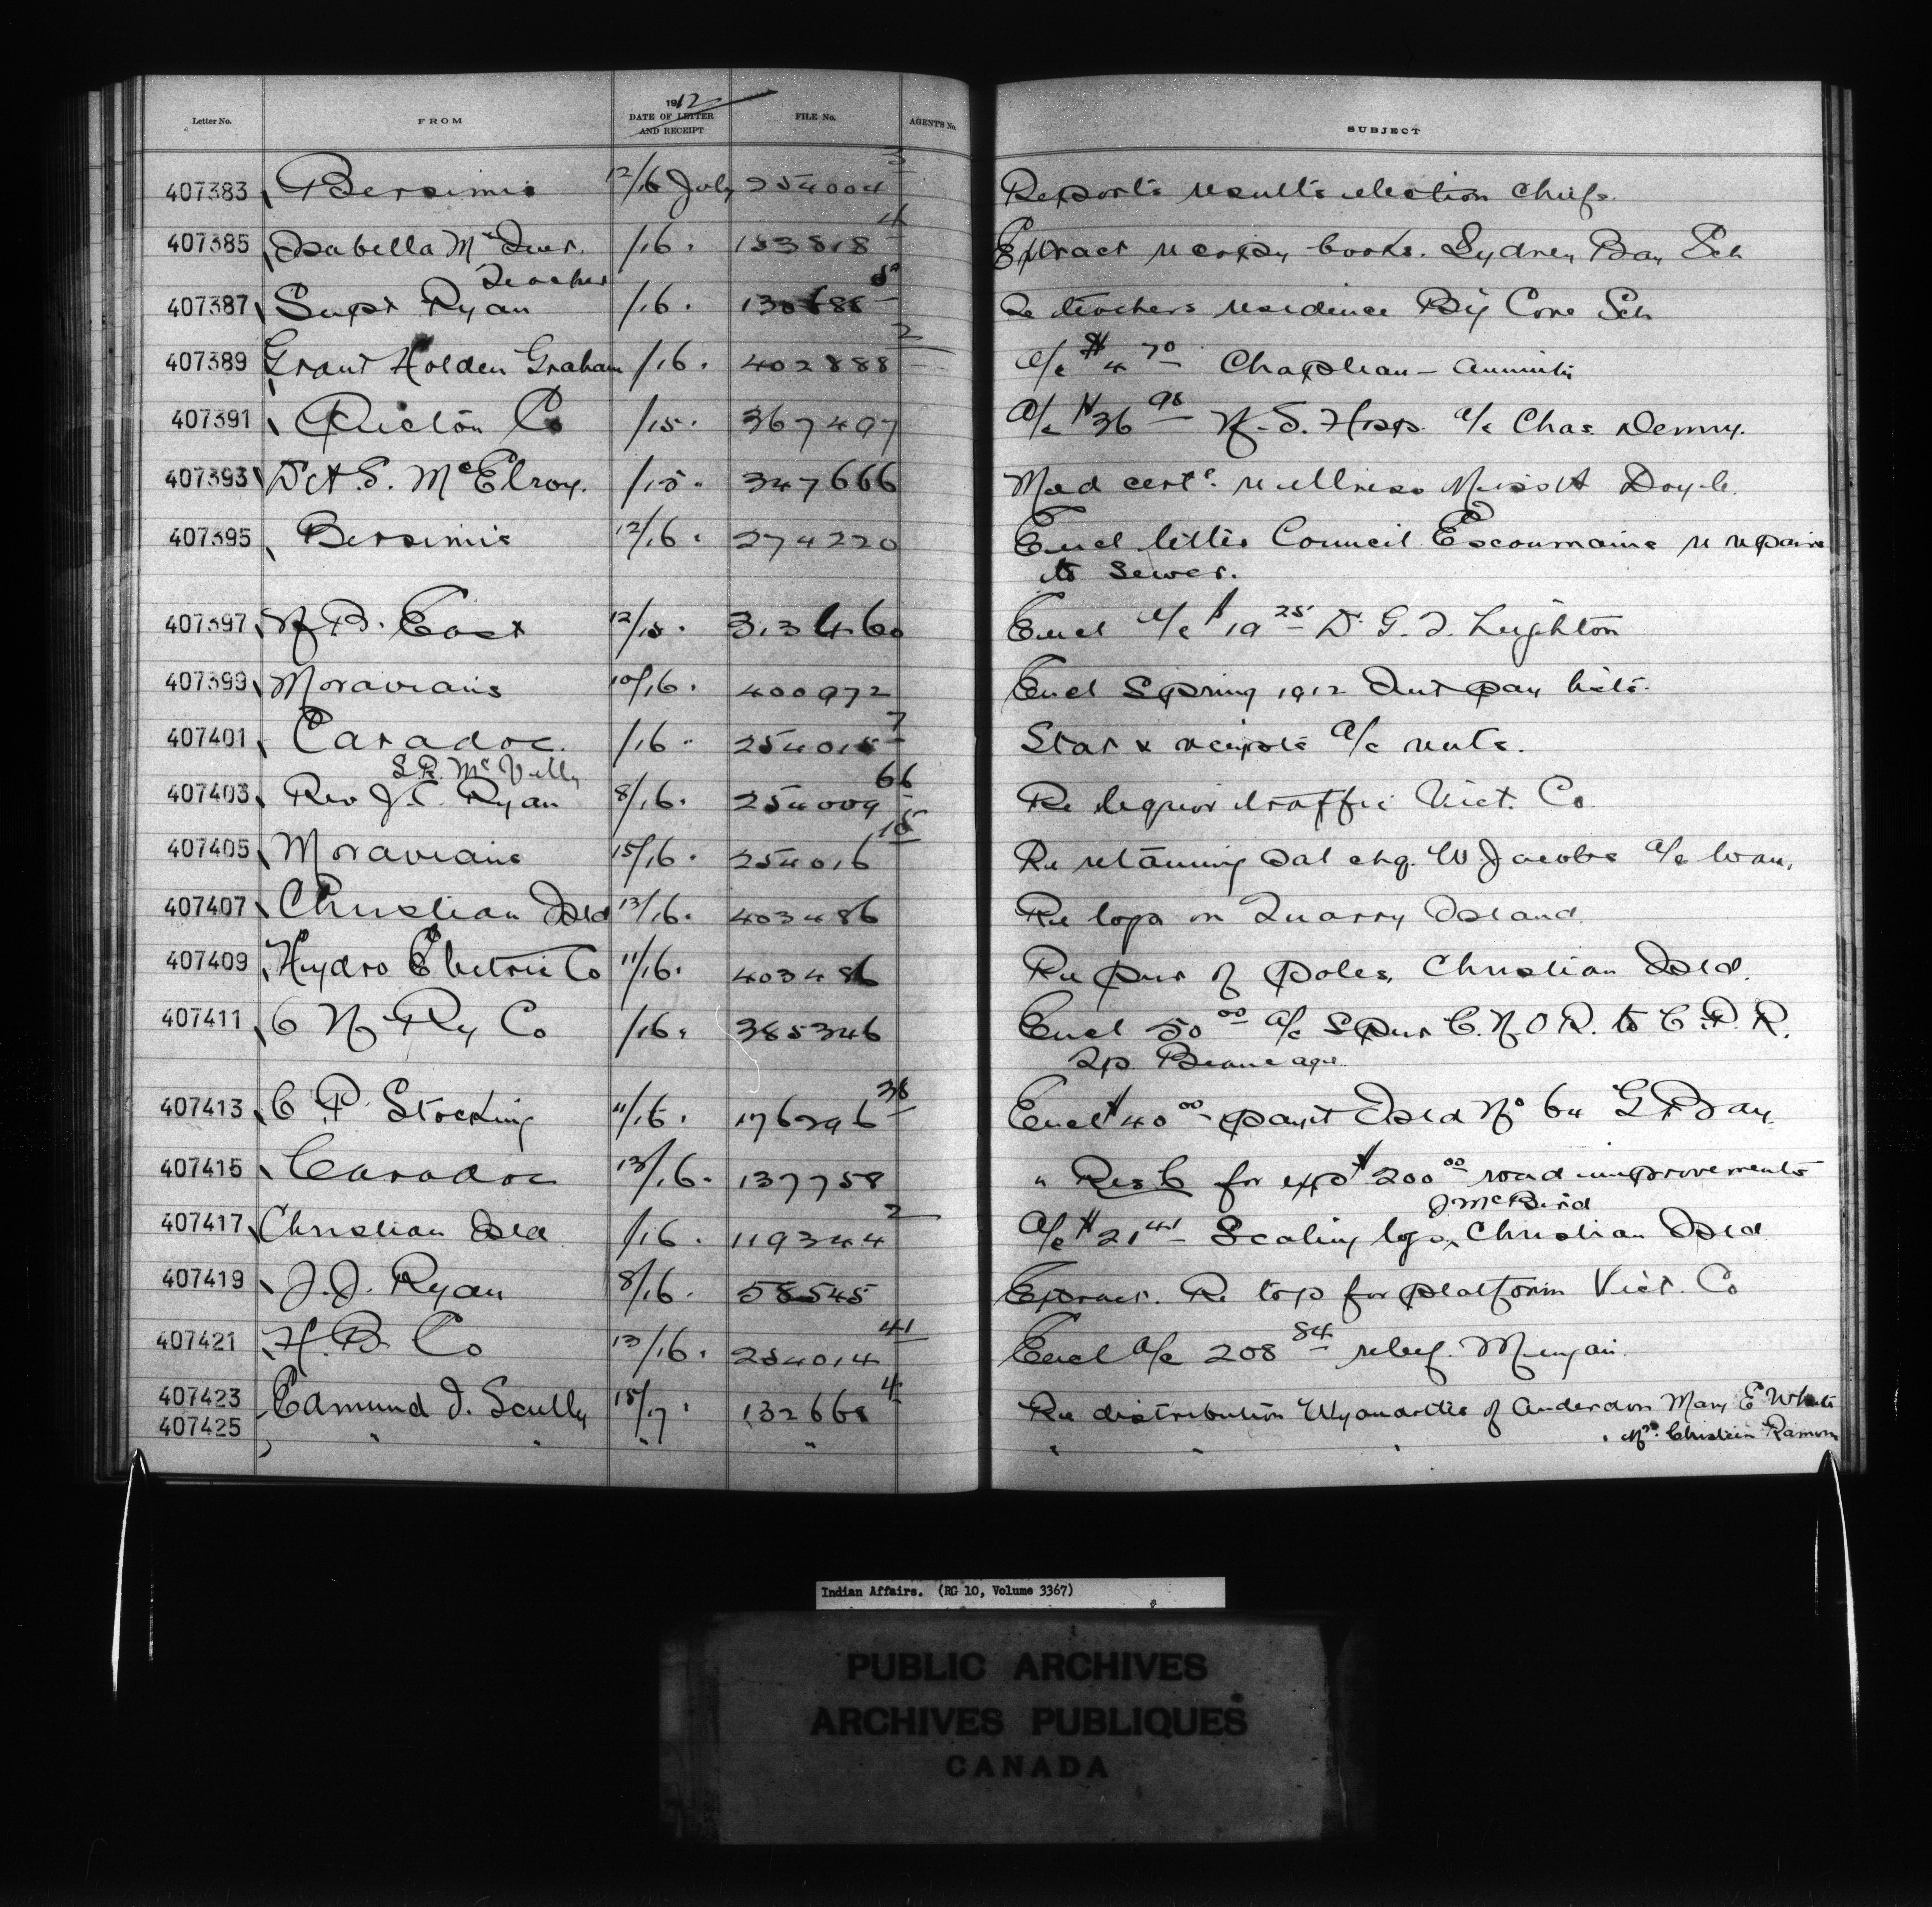 Letter No. FROM 1912 DATE OF LETTER AND RECEIPT FILE No. AGENT'S No. SUBJECT
407383 Bersimis 12/16 July 254004 3 Reports results election Chiefs.
407385 Isabella Mc 16. 153818 4 Extract re copy books. Sydney Bay Sch
Teacher
407387 Supt Ryan /16. Re teachers residence Big Cove Sch
407389 Grant Holden Graham /16. 402888 2 A/c $4 70 Chapleau - Annuity
407391 Pictou Co /15. 367497 A/c $36 98 N.S. Hosp. A/c Chas Denny.
407393 Dr A.S. McElroy. /15. 347666 Med certe. re illness Miss A Doyle.
407395 Bersimis 12/16. 274220 Encl letter Council Escoumains re repairs
to sewer.
407397 N.B. East 12/15. 313460 Encl A/c $19 25 Dr G.T. Leighton
407399 Moravians 10/16. 400972 Encl Spring 1912 Int pay lists.
407401 Caradoc. /16. 254015 7 Stat & receipts A/c rents.
S.R. McVitty
407403 Rev J.C. Ryan 8/16. 254009 66 Re liquor traffic Vict. Co
407405 Moravians 15/16. 254016 15 Re retaining Sal chq. W. Jacobs A/c loan.
407407 Christian Isld 13/16. 403486 Re logs on Quarry Island.
407409 Hydro Electric Co 11/16. 403486 Re pur of poles, Christian Isld.
407411 C N Ry Co /16. 385346 Encl 50 00 A/c Spur C.N.O.R. to C.P.R.
Tp. Beaucage.
407413 C P Stocking 11/16. 176296 38 Encl $40 00 payt Isld No 64 G Bay.
407415 Caradoc 13/16. 137758 " Res C for exp $200 00 road improvements
J McBird
407417 Christian Isld /16. 119344 2 A/c $21 41 Scaling logs, Christian Isld
407419 J.J. Ryan 8/16. 58545 Extract. Re top for platform Vict. Co
407421 H.B. Co 13/16. 254014 41 Encl A/c 208 84 relief. Mingan.
407423 Edmund J. Scully 15/7. 132668 4 Re distribution Wyandottes of Anderdon Mary E White
407425 " " " " " " " " Mrs. Christian
Indian Affairs. (RG 10, Volume 3367)
PUBLIC ARCHIVES
ARCHIVES PUBLIQUES
CANADA